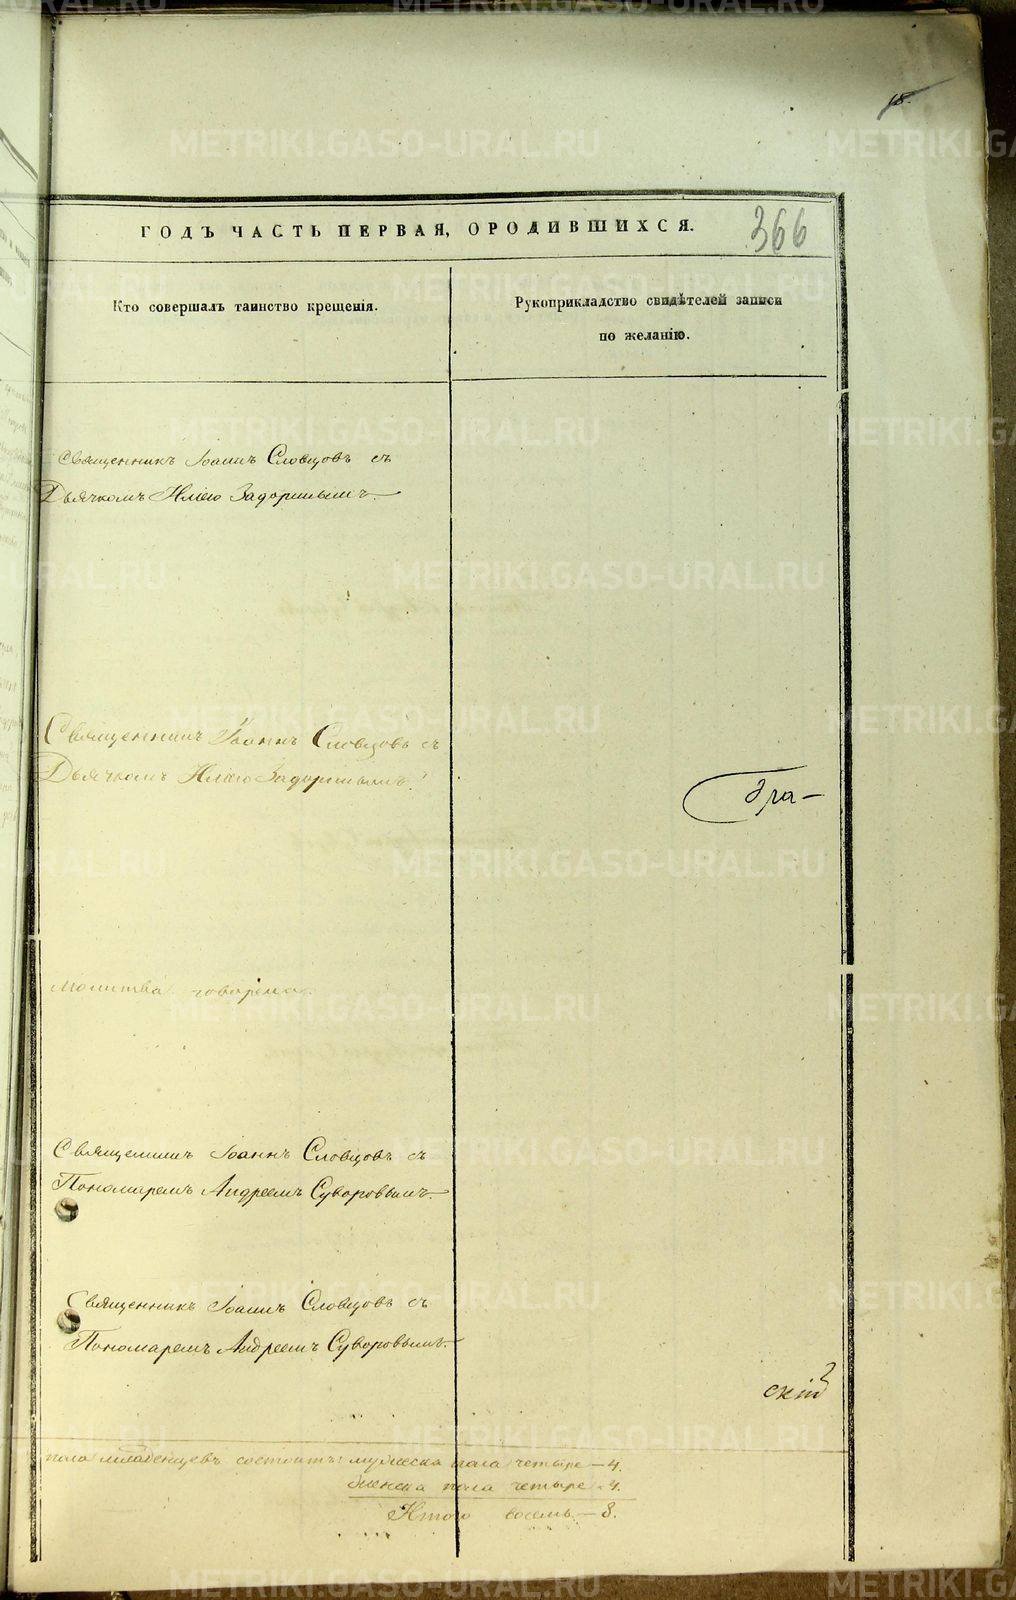 18.
ГОДЪ ЧАСТЬ ПЕРВАЯ, ОРОДИВШИХСЯ.
366
Кто совершалъ таинство крещенія.
Рукоприкладство свидѣтелей записи
по желанію.
Священникъ Іоаннъ Словцовъ съ
Дьячкомъ Иліею Задоринымъ.
Священникъ Іоаннъ Словцовъ съ
Дьячкомъ Иліею Задоринымъ.
Гра-
Молитва говорена.
Священникъ Іоаннъ Словцовъ съ
Пономаремъ Андреемъ Суворовымъ.
Священникъ Іоаннъ Словцовъ съ
Пономаремъ Андреемъ Суворовымъ.
скій
пола младенцевъ состоитъ: мужеска пола четыре - 4.
женска пола четыре - 4.
Итого восемь - 8.
METRIKI.GASO-URAL.RU